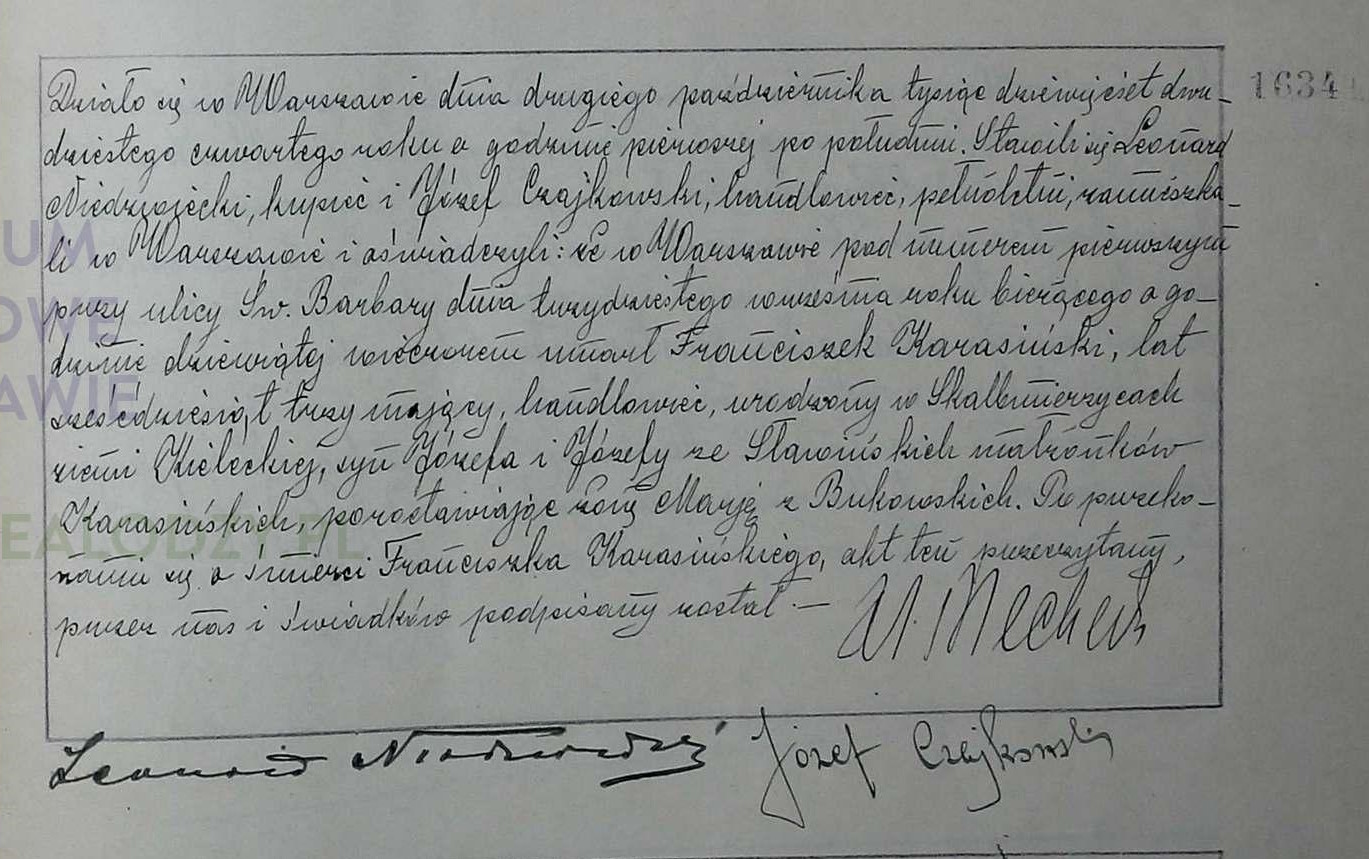 Działo się w Warszawie dnia drugiego października tysiąc dziewięćset dwu- 1634
dziestego czwartego roku o godzinie pierwszej po południu. Stawili się Leonard
Niedzwiecki, kupiec i Józef Czajkowski, handlowiec, pełnoletni, zamieszka-
li w Warszawie i oświadczyli: że w Warszawie pod numerem pierwszym
przy ulicy Św. Barbary dnia trzydziestego września roku bieżącego o go-
dzinie dziewiątej wieczorem umarł Franciszek Karasiński, lat
sześćdziesiąt trzy mający, handlowiec, urodzony w Skalbmierzycach
ziemi Kieleckiej, syn Józefa i Józefy ze Sławińskich małżonków
Karasińskich, pozostawiając żonę Marję z Bukowskich. Po przeko-
naniu się o śmierci Franciszka Karasińskiego, akt ten przeczytany,
przez nas i świadków podpisany został. —
Józef Czajkowski
UM
OWE
AWIE
EALODZY.PL